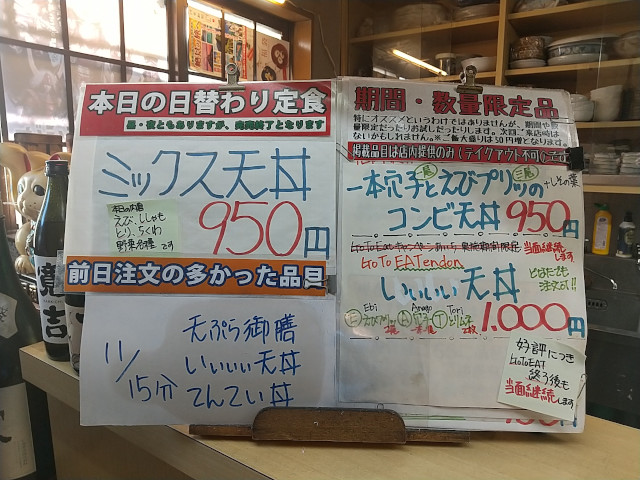 本日の日替わり定食
昼・夜ともありますが、完売終了となります
ミックス天丼
本日の内容
えび、ししゃも
とり、ちくわ
野菜各種です
950円
前日注文の多かった品目
天ぷら御膳
いいいい天丼
てんてい丼
11/15分
期間・数量限定品
特にオススメというわけではありませんが、期間や
量限定だったりお試しだったりします。次回ご来店時は
ないかもしれません。※ご飯大盛りは50円増となります。
掲載品目は店内提供のみ(テイクアウト不可)です
一本穴子とえびプリッツの
+しその葉
コンビ天丼 950円
当面継続します
GoTo EATendon
いいいい天丼
どなたでも
注文可!!
Ebi Anago Tori
1.000円
好評につき
GoToEAT
終了後も
当面継続します